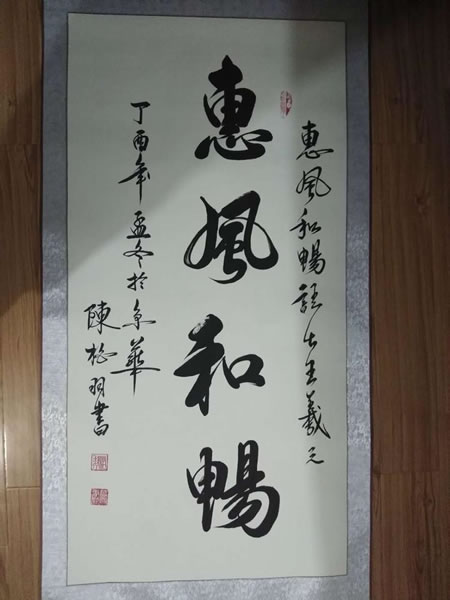 惠風和暢語出王羲之
惠風和暢
丁酉年孟冬於京華
陳羽書